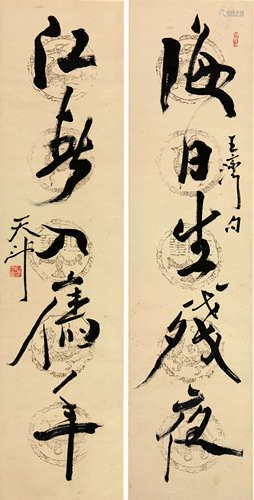 海日生残夜
王湾句
江春入舊年